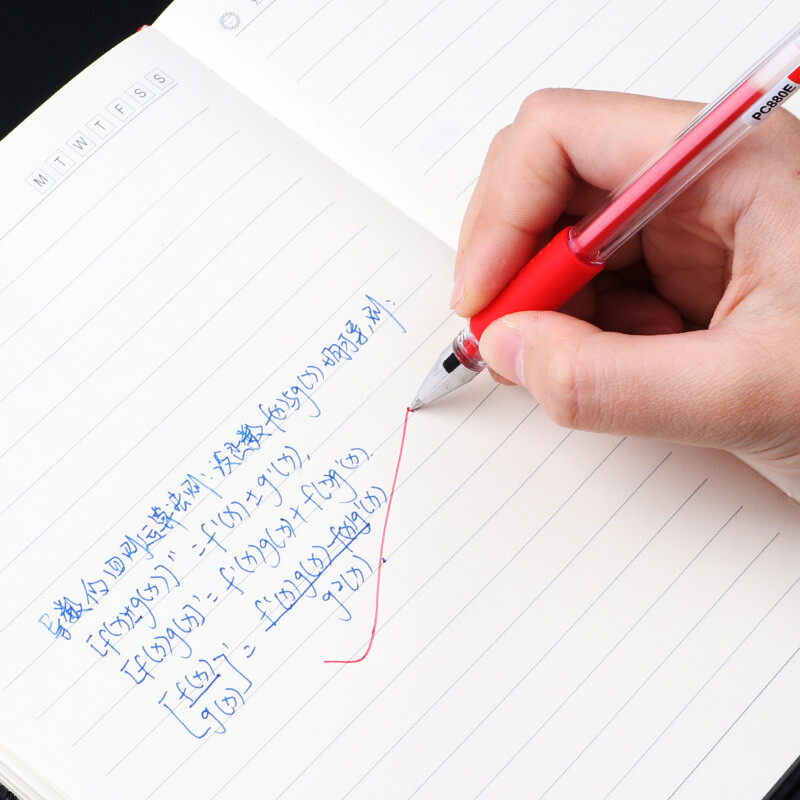 M T W T F S S
导数的四则运算法则：设函数f(x)与g(x)均可导，则：
[f(x)±g(x)]' = f'(x)±g'(x).
[f(x)g(x)]' = f'(x)g(x)+f(x)g'(x).
[f(x)/g(x)]' = f'(x)g(x)-f(x)g'(x)/g²(x)
PC880E